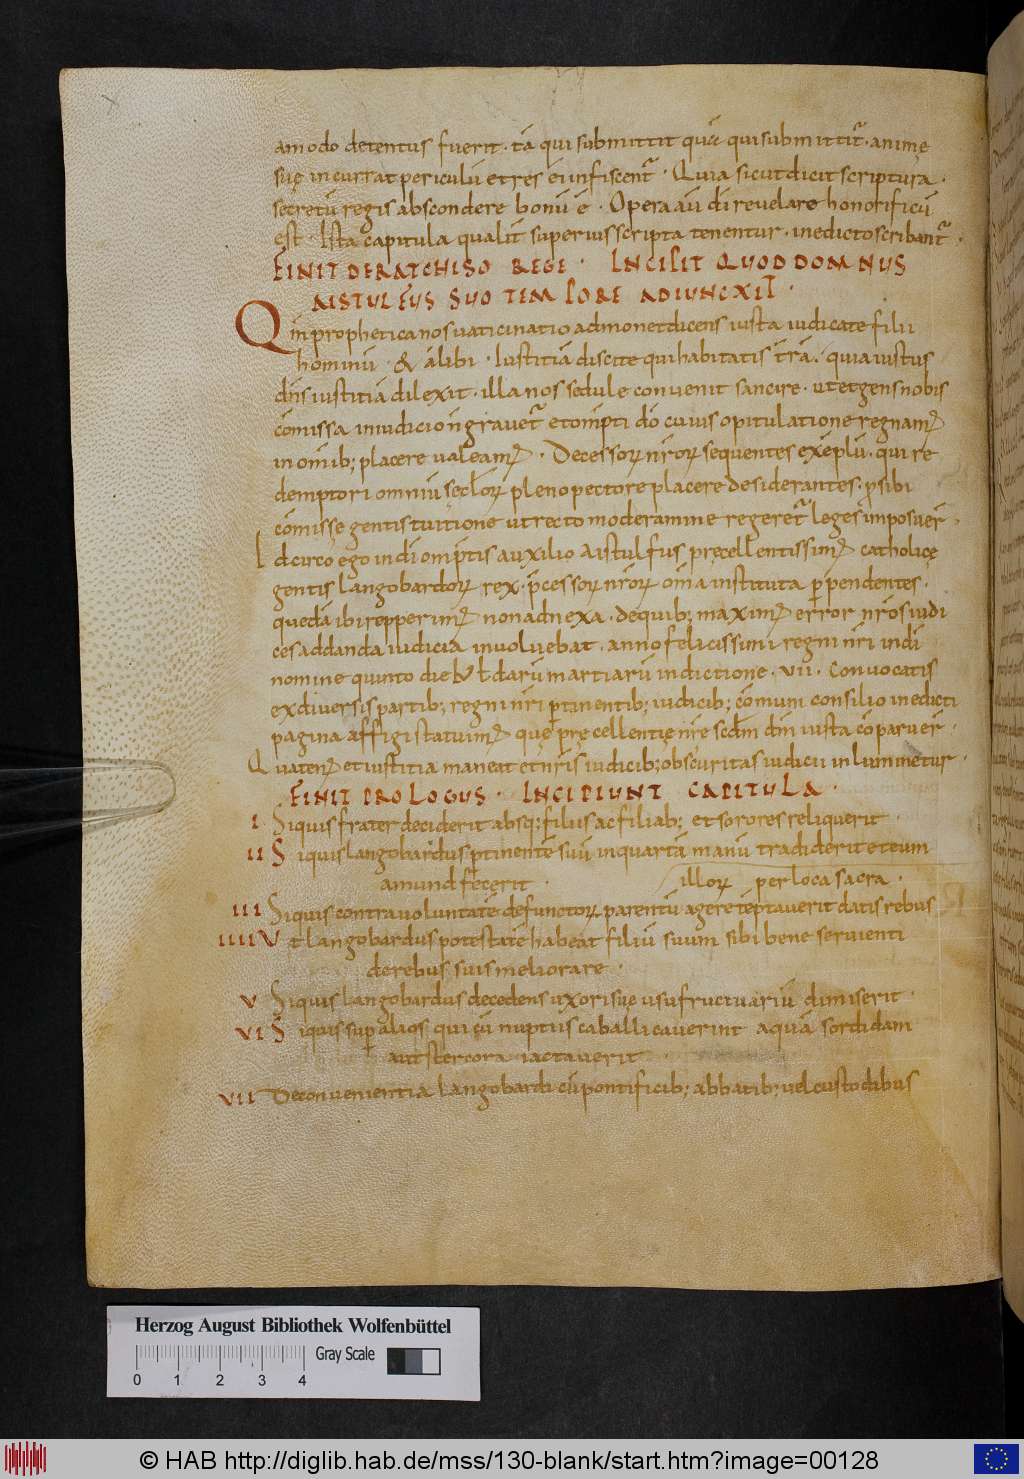 amodo detentus fuerit · tā qui submittit quā qui submittit̃ · animę
suę incurrat periculū et res ei infiscent̃ · Quia sicut dicit scriptura ·
secretū regis abscondere bonū ē · Opera aū di reuelare honorificū
est · Ista capitula qualit̃ superius scripta tenentur · in edicto scribant̃ ·
FINIT DE RATCHISO REGE · INCIPIT QUOD DOMNUS
AISTULFUS SUO TEMPORE ADIUNCXIT ·
Qm prophetica nos uaticinatio admonet dicens iusta iudicate filii
hominū · & alibi · Iustitiā discite qui habitatis tr̄ā · quia iustus
dn̄s iustitiā dilexit · illa nos sedule conuenit sancire · ut et gens nobis
cōmissa in iudicio n̄ grauet̃ et omp̄ti dō cuius opitulatione regnam;
in om̄ib; placere ualeam; · Decessorꝝ nr̄orꝝ sequentes exēplū · qui re
demptori omniū sęcl̄orꝝ pleno pectore placere desiderantes · p sibi
cōmisse gentis tuitione ut recto moderamine regeret̃ leges imposuer̄ ·
Idcirco ego in dī omp̄tis auxilio aistulfus pręcellentissim; catholicę
gentis langobardorꝝ rex · p̄cessorꝝ nr̄orꝝ om̄a instituta p̱pendentes ·
quedā ibi repperim; non adnexa · de quib; maxim; error nr̄os iudi
ces ad danda iudicia inuoluebat · anno felicissimi regni nr̄i in dī
nomine quinto die kł̄darū martiarū indictione · VII · Conuocatis
ex diuersis partib; regni nr̄i p̱tinentib; iudicib; cōmuni consilio in edicti
pagina affigi statuim; quę pręcellentię nr̄e scdm̄ dm̄ iusta cōparuer̄ ·
Quaten; et iustitia maneat et nr̄is iudicib; obscuritas iudicii inluminetur ·
FINIT PROLOGUS · INCIPIUNT CAPITULA ·
I · Siquis frater deciderit absq; filiis ac filiab; et sorores reliquerit ·
II Siquis langobardus p̱tinentē suū in quartā manū tradiderit et eum
amund fecerit · illorꝝ per loca sacra ·
III Siquis contra uoluntatē defunctorꝝ parentū agere tēptauerit datis rebus
IIII Vt langobardus potestatē habeat filiū suum sibi bene seruienti
de rebus suis meliorare ·
V Siquis langobardus decedens uxori suę usufructuariū dimiserit ·
VI Siquis sup̱ alios qui cū nuptus caballicauerint aquā sordidam
aut stercora iactauerit ·
VII De conuenientia langobardi cū pontificib; abbatib; uel custodibus
Herzog August Bibliothek Wolfenbüttel
Gray Scale
0 1 2 3 4
© HAB http://diglib.hab.de/mss/130-blank/start.htm?image=00128